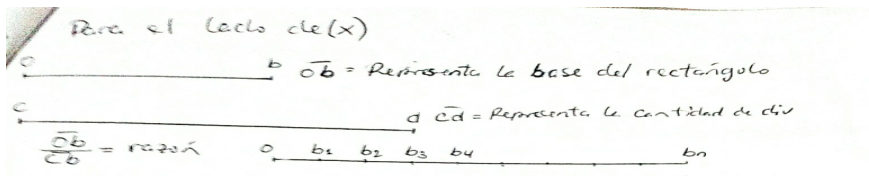 Para el lado de(x)
o b ob = Representa la base del rectángulo
c d cd = Representa la cantidad de div
ob/cb = razón o b1 b2 b3 b4 bn